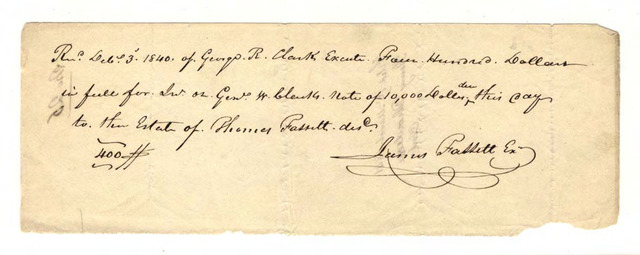 Rec. Feb. 3. 1840. of George R. Clark Executr. Four Hundred Dollars
in full for Int on Genl. W. Clark's Note of 10,000 Dollars, due this day
to the Estate of Thomas Fassett decd.
400$
James Fassett Exr